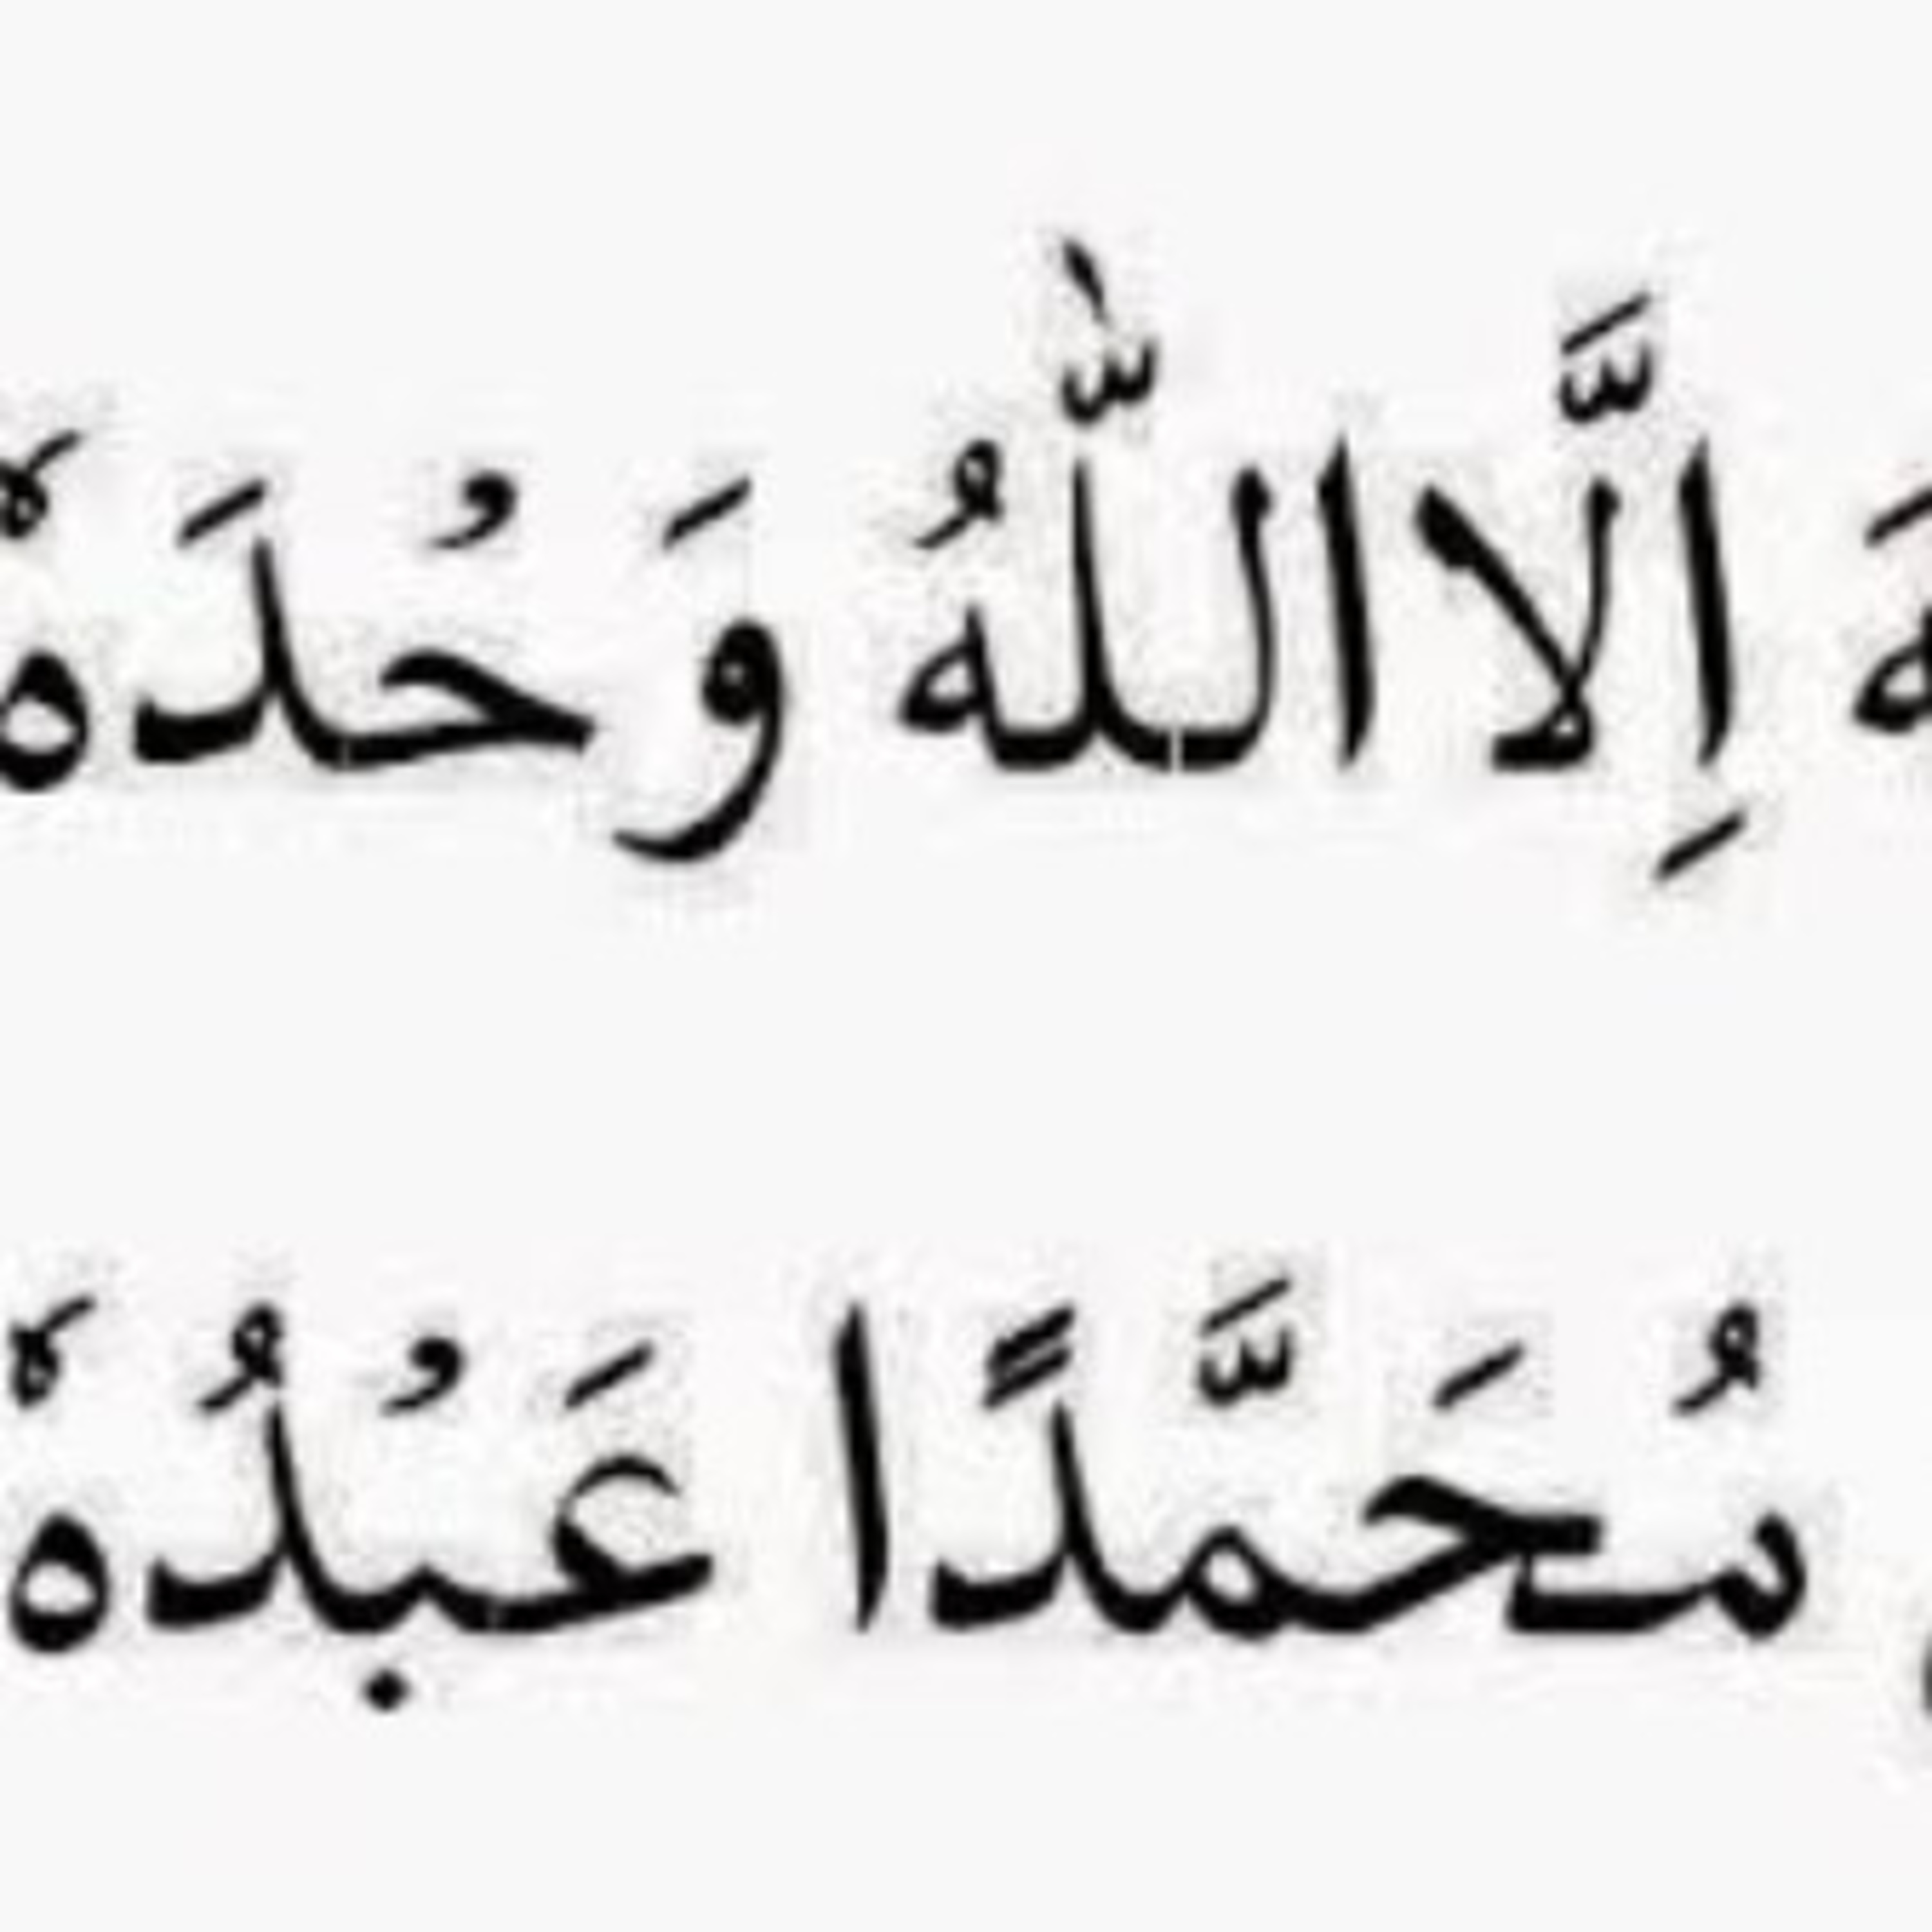 هَ إِلَّا اللّٰهُ وَحْدَهٗ
مُحَمَّدًا عَبْدُهٗ